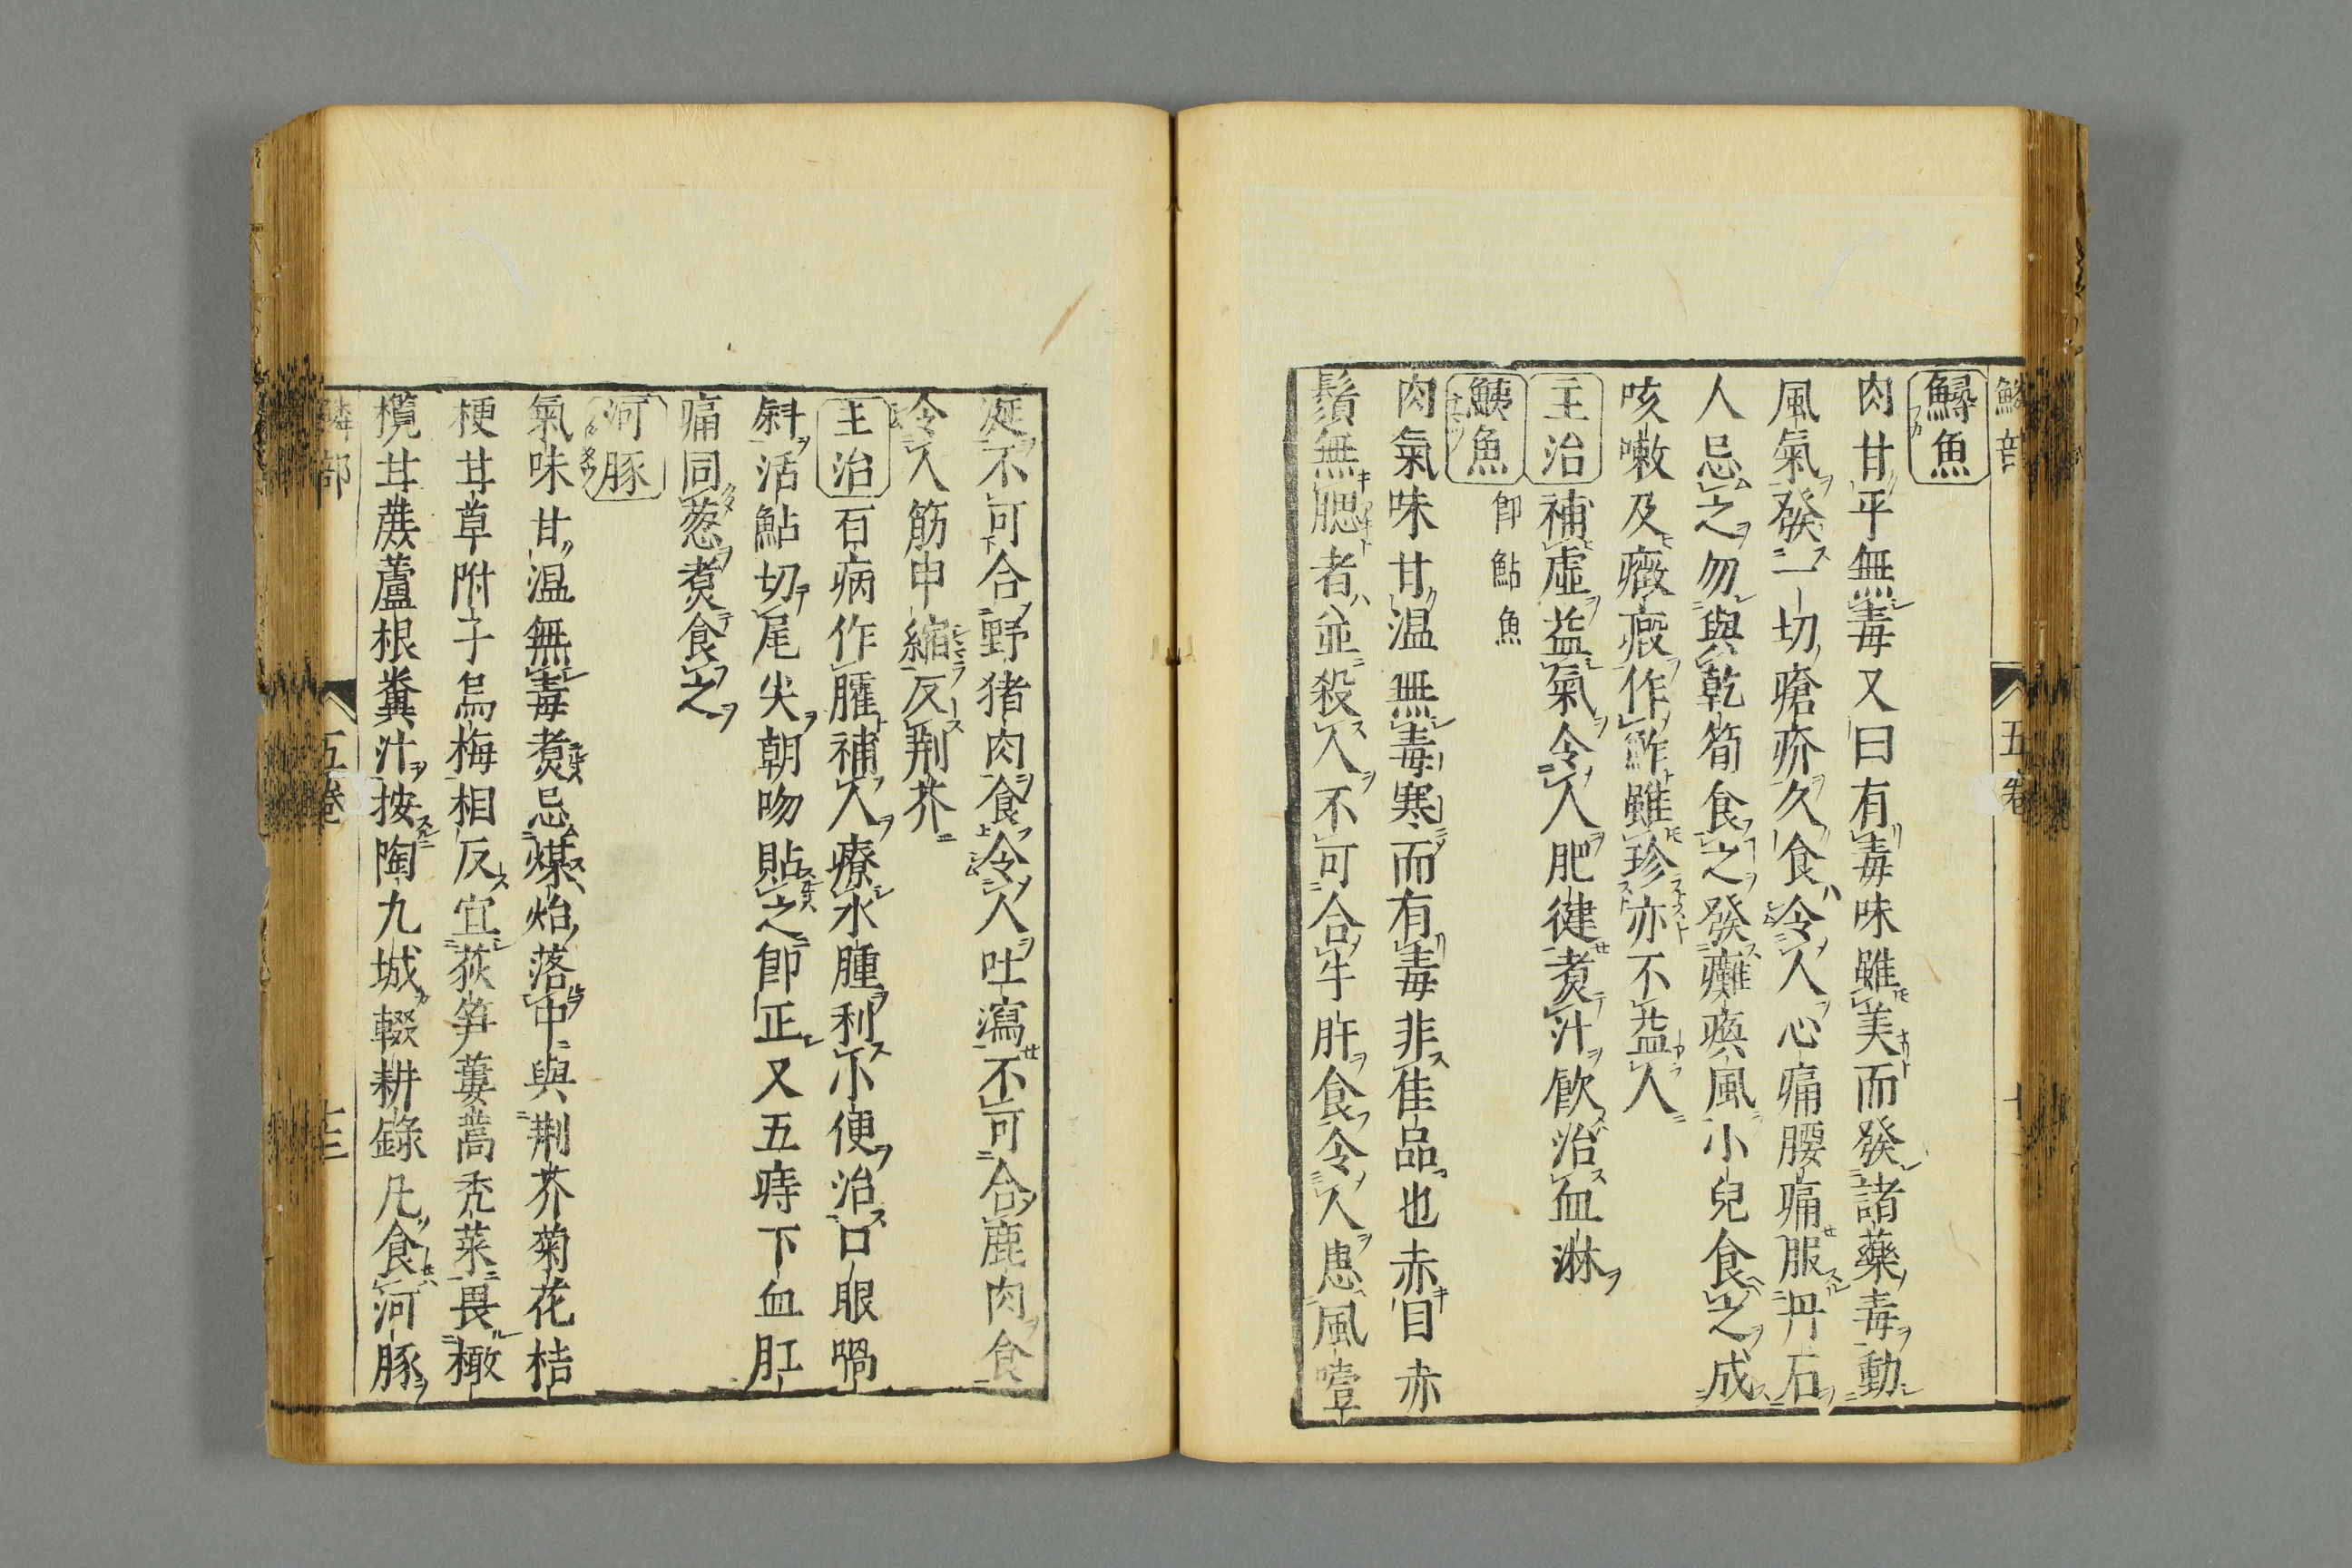 鱘魚
肉甘平無毒又曰有毒味雖美而發諸藥毒動
風氣發一切瘡疥久食令人心痛腰痛服丹石
人忌之勿與乾筍食之發癱瘓風小兒食之成
咳嗽及癥瘕作鮓雖珍亦不益人
主治 補虛益氣令人肥健煮汁飲治血淋
鮧魚 即鮎魚
肉氣味甘温無毒寒而有毒非佳品也赤目赤
鬚無腮者並殺人不可合牛肝食令人患風噎
涎不可合野猪肉食令人吐瀉不可合鹿肉食
令人筋中縮反荆芥
主治 百病作臛補人療水腫利小便治口眼喎
斜活鮎切尾尖朝吻貼之即正又五痔下血肛
痛同葱煮食之
河豚
氣味甘温無毒煮忌煤炲落中與荆芥菊花桔
梗甘草附子烏梅相反宜荻笋蔞蒿禿菜畏橄
欖甘蔗蘆根糞汁按陶九城輟耕錄凡食河豚
鱗部 五卷